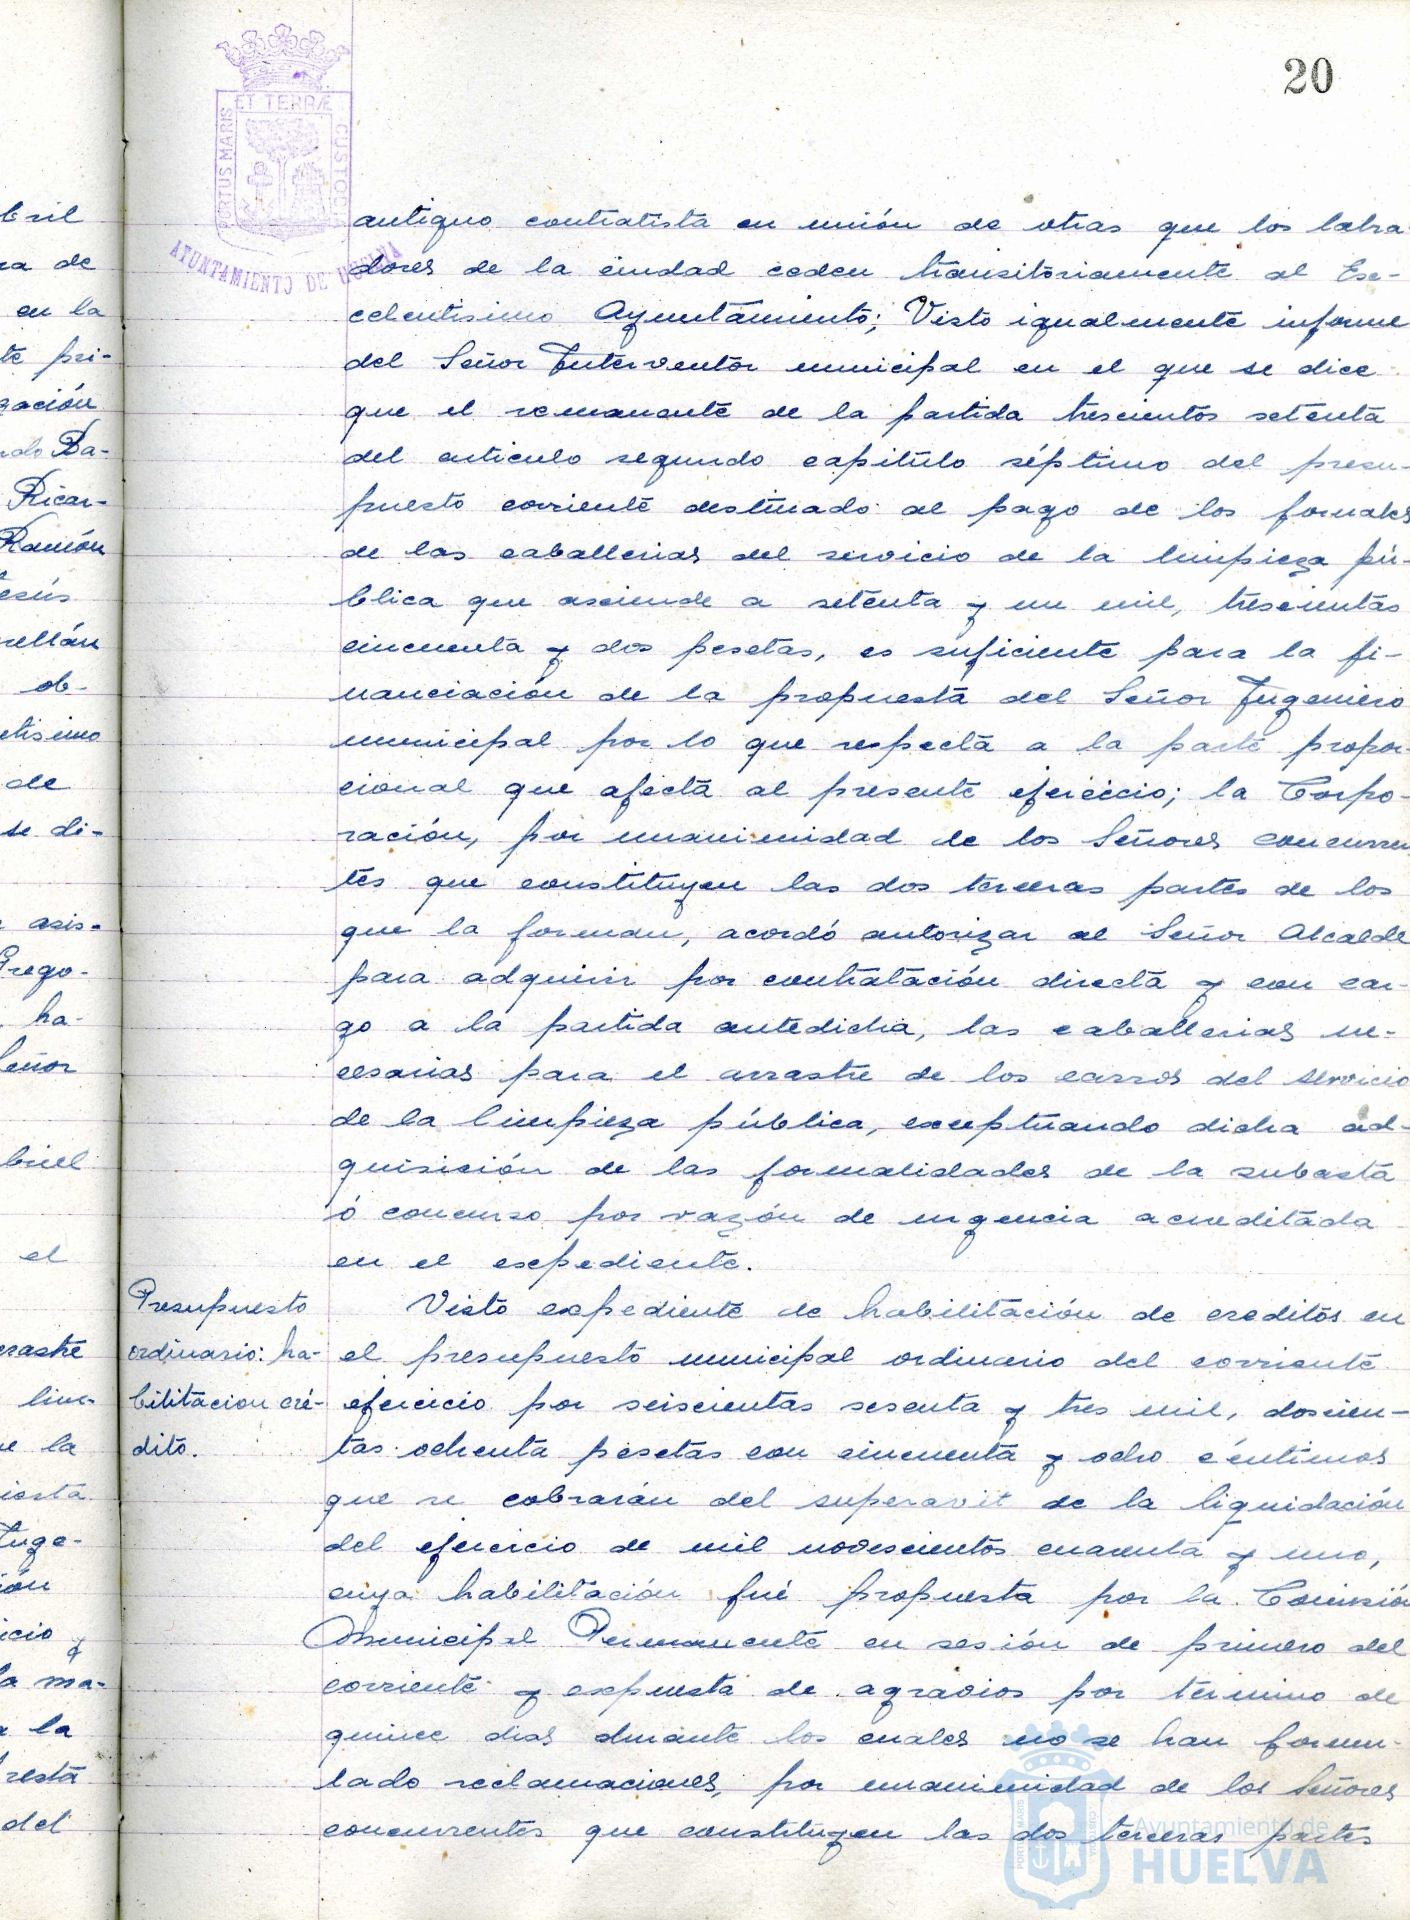 20
ET TERRÆ
PORTUS MARIS
CUSTODIA
AYUNTAMIENTO DE HUELVA
antiguo contratista en unión de otras que los labra-
dores de la ciudad ceden transitoriamente al Exc-
celentisimo Ayuntamiento; Visto igualmente informe
del Señor Interventor municipal en el que se dice
que el remanente de la partida trescientos setenta
del articulo segundo capitulo séptimo del presu-
puesto corriente destinado al pago de los jornales
de las caballerias del servicio de la limpieza pú-
blica que asciende a setenta y un mil, trescientas
cincuenta y dos pesetas, es suficiente para la fi-
nanciación de la propuesta del Señor Ingeniero
municipal por lo que respecta a la parte propor-
cional que afecta al presente ejercicio; la Corpo-
ración, por unanimidad de los Señores concurren
tes que constituyen las dos terceras partes de los
que la forman, acordó autorizar al Señor Alcalde
para adquirir por contratación directa y con car-
go a la partida antedicha, las caballerias ne-
cesarias para el arrastre de los carros del servicio
de la limpieza pública, exceptuando dicha ad-
quisición de las formalidades de la subasta
ó concurso por razón de urgencia acreditada
en el expediente.
Presupuesto
ordinario: ha-
bilitacion cré-
dito.
Visto expediente de habilitación de creditos en
el presupuesto municipal ordinario del corriente
ejercicio por seiscientas sesenta y tres mil, doscien-
tas ochenta pesetas con cincuenta y ocho céntimos
que se cobrarán del superavit de la liquidación
del ejercicio de mil novescientos cuarenta y uno,
cuya habilitación fué propuesta por la Comisión
Municipal Permanente en sesión de primero del
corriente y expuesta de agravios por termino de
quince dias durante los cuales no se han formu-
lado reclamaciones, por unanimidad de los Señores
concurrentes que constituyen las dos terceras partes
Ayuntamiento de
HUELVA
bril
ra de
en la
te pri-
zación
Ricar-
Ramón
esús
rellán
ob-
de
se di-
asis-
Grego-
ha-
Señor
briel
el
rrastre
lim-
la
Inge-
ión
icio y
la ma-
la
resta
del